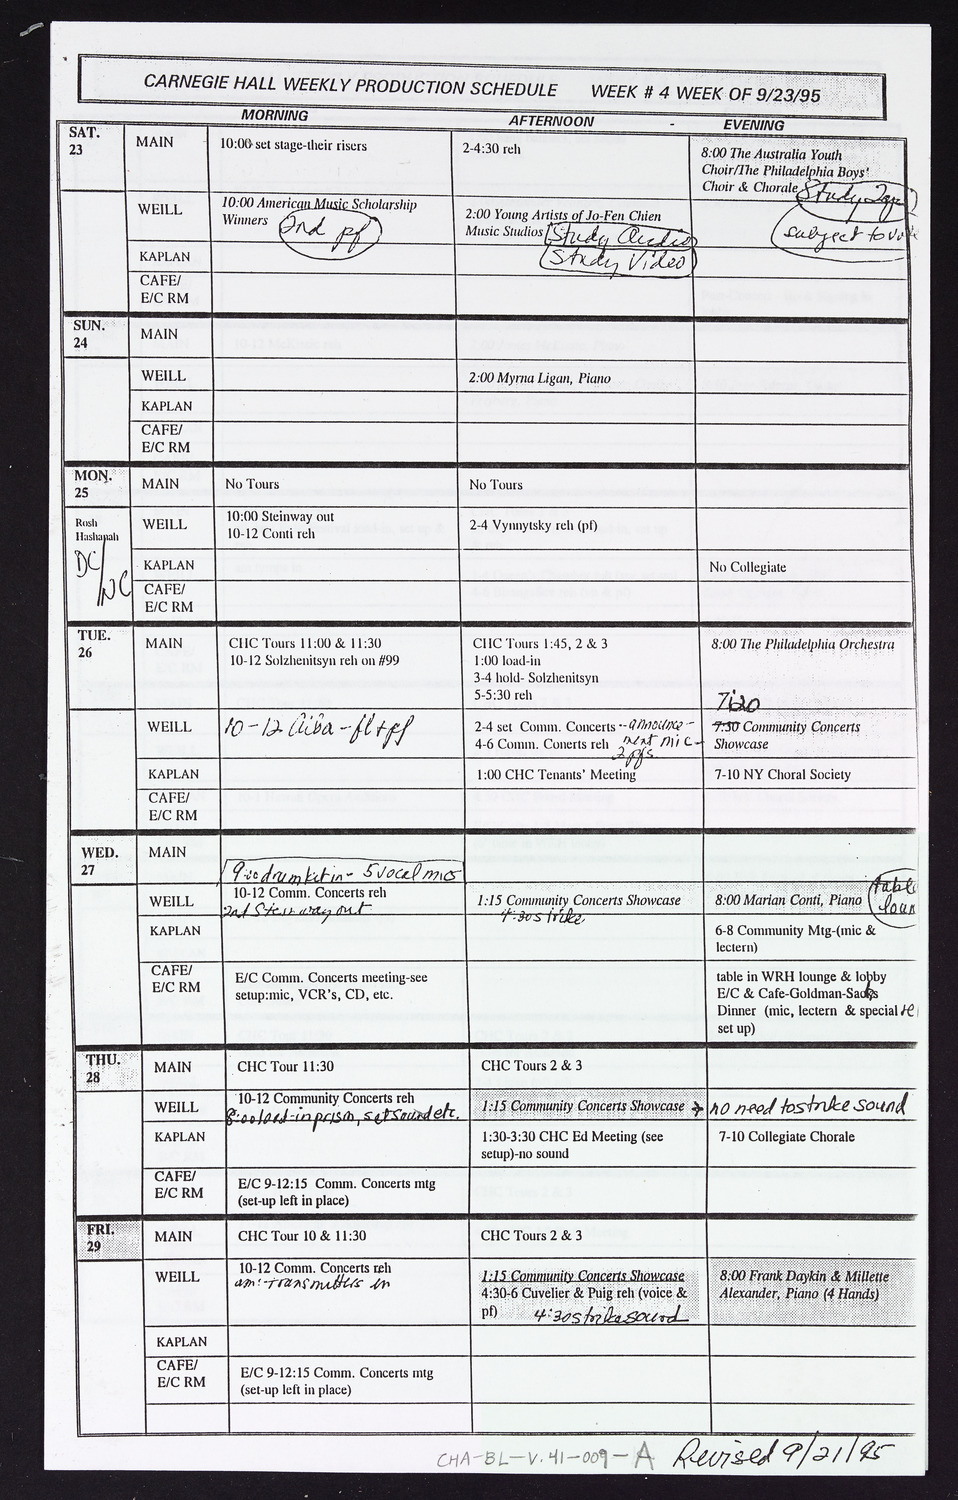 CARNEGIE HALL WEEKLY PRODUCTION SCHEDULE WEEK # 4 WEEK OF 9/23/95
MORNING AFTERNOON - EVENING
SAT.
23
MAIN
10:00 set stage-their risers
2-4:30 reh
8:00 The Australia Youth
Choir/The Philadelphia Boys'
Choir & Chorale
Study Tape
subject to
WEILL
10:00 American Music Scholarship
Winners
2nd pf
2:00 Young Artists of Jo-Fen Chien
Music Studios
Study Audio
Study Video
KAPLAN
CAFE/
E/C RM
SUN.
24
MAIN
WEILL
2:00 Myrna Ligan, Piano
KAPLAN
CAFE/
E/C RM
MON.
25
Rosh
Hashanah
DC/NC
MAIN
No Tours
No Tours
WEILL
10:00 Steinway out
10-12 Conti reh
2-4 Vynnytsky reh (pf)
KAPLAN
No Collegiate
CAFE/
E/C RM
TUE.
26
MAIN
CHC Tours 11:00 & 11:30
10-12 Solzhenitsyn reh on #99
CHC Tours 1:45, 2 & 3
1:00 load-in
3-4 hold- Solzhenitsyn
5-5:30 reh
8:00 The Philadelphia Orchestra
WEILL
10-12 Ciba - fl + pf
2-4 set Comm. Concerts -- announce-
4-6 Comm. Conerts reh ment mic -
2 pfs.
7:20
7:30 Community Concerts
Showcase
KAPLAN
1:00 CHC Tenants' Meeting
7-10 NY Choral Society
CAFE/
E/C RM
WED.
27
MAIN
9:00 drumkit in - 5 vocal mics
WEILL
10-12 Comm. Concerts reh
2nd Steinway out
1:15 Community Concerts Showcase
4:30 strike
8:00 Marian Conti, Piano
KAPLAN
6-8 Community Mtg-(mic &
lectern)
CAFE/
E/C RM
E/C Comm. Concerts meeting-see
setup:mic, VCR's, CD, etc.
table in WRH lounge & lobby
E/C & Cafe-Goldman-Sachs
Dinner (mic, lectern & special
set up)
THU.
28
MAIN
CHC Tour 11:30
CHC Tours 2 & 3
WEILL
10-12 Community Concerts reh
8:00 load-in prism, set sound etc.
1:15 Community Concerts Showcase → no need to strike sound
KAPLAN
1:30-3:30 CHC Ed Meeting (see
setup)-no sound
7-10 Collegiate Chorale
CAFE/
E/C RM
E/C 9-12:15 Comm. Concerts mtg
(set-up left in place)
FRI.
29
MAIN
CHC Tour 10 & 11:30
CHC Tours 2 & 3
WEILL
10-12 Comm. Concerts reh
am: transmitters in
1:15 Community Concerts Showcase
4:30-6 Cuvelier & Puig reh (voice &
pf) 4:30 strike sound
8:00 Frank Daykin & Millette
Alexander, Piano (4 Hands)
KAPLAN
CAFE/
E/C RM
E/C 9-12:15 Comm. Concerts mtg
(set-up left in place)
CHA-BL-V.41-009-A Revised 9/21/95